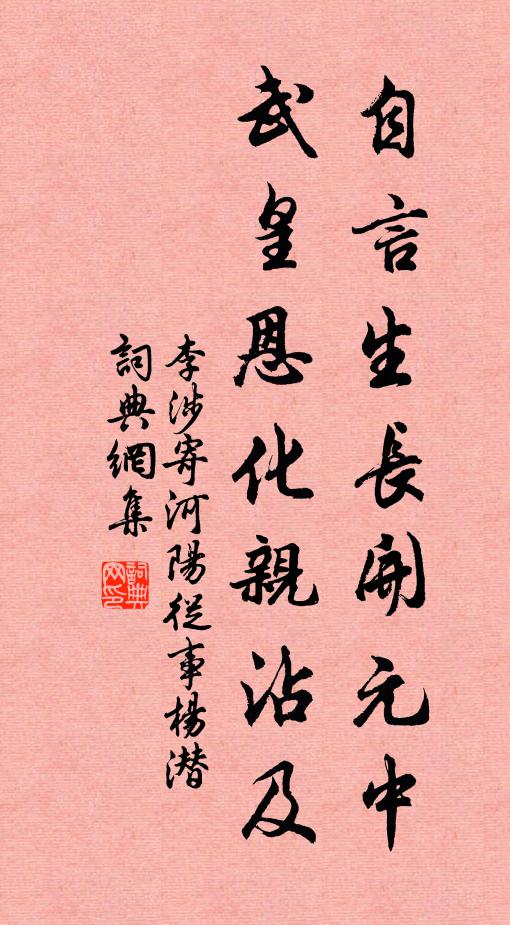 自言生長開元中
武皇恩化親沾及
李涉寄河陽從事楊潛
詞典網集
詞典網印